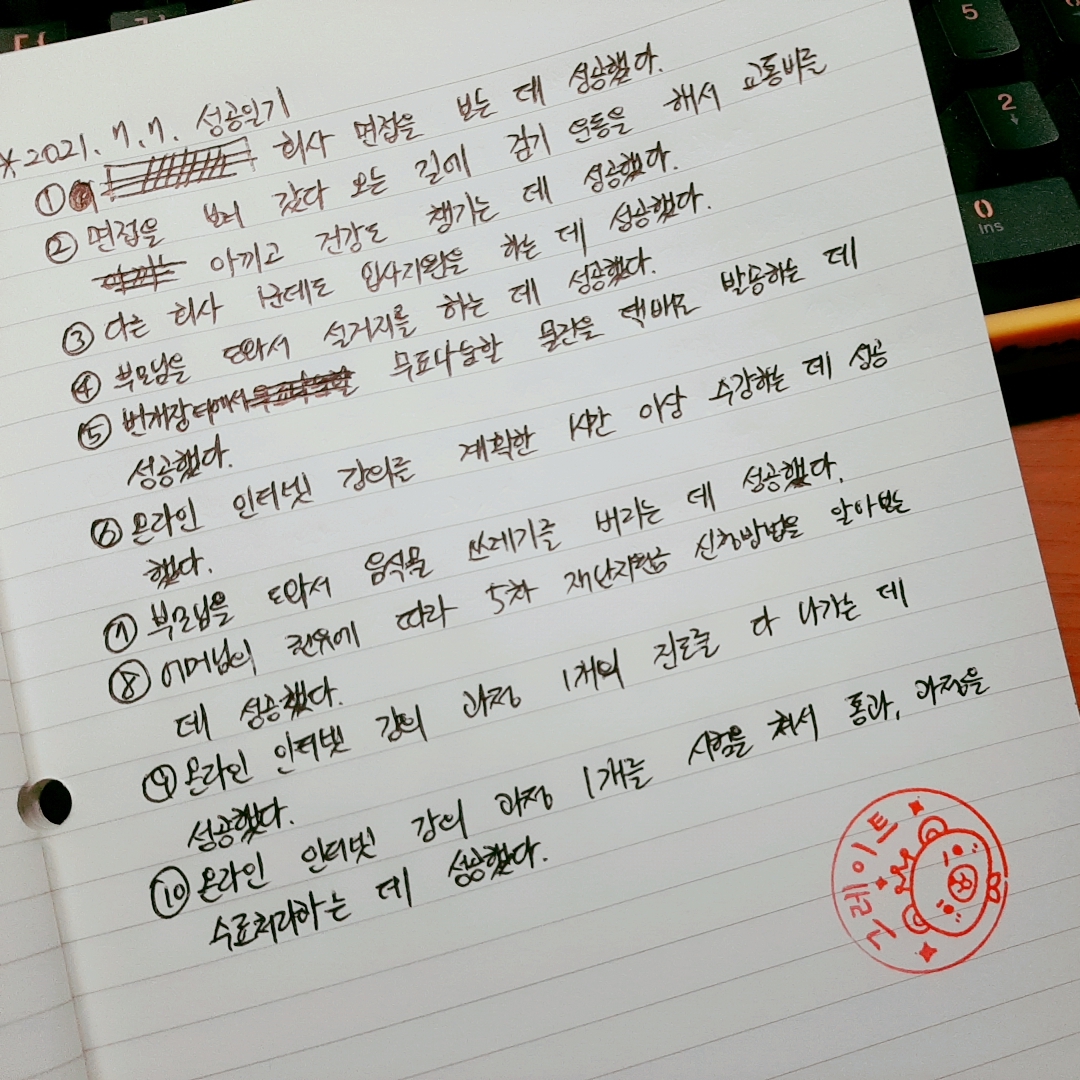 * 2021. 7. 7. 성공일기
① 회사 면접을 보는 데 성공했다.
② 면접을 보러 갔다 오는 길에 걷기 운동을 해서 교통비를
아끼고 건강도 챙기는 데 성공했다.
③ 다른 회사 1군데도 입사지원을 하는 데 성공했다.
④ 부모님을 도와서 설거지를 하는 데 성공했다.
⑤ 번개장터에서 무료나눔할 물건을 택배로 발송하는 데
성공했다.
⑥ 온라인 인터넷 강의를 계획한 1시간 이상 수강하는 데 성공
했다.
⑦ 부모님을 도와서 음식물 쓰레기를 버리는 데 성공했다.
⑧ 어머님의 권유에 따라 5차 재난지원금 신청방법을 알아보는
데 성공했다.
⑨ 온라인 인터넷 강의 과정 1개의 진도를 다 나가는 데
성공했다.
⑩ 온라인 인터넷 강의 과정 1개를 시험을 쳐서 통과, 과정을
수료처리하는 데 성공했다.
그레이트
5
2
0
Ins